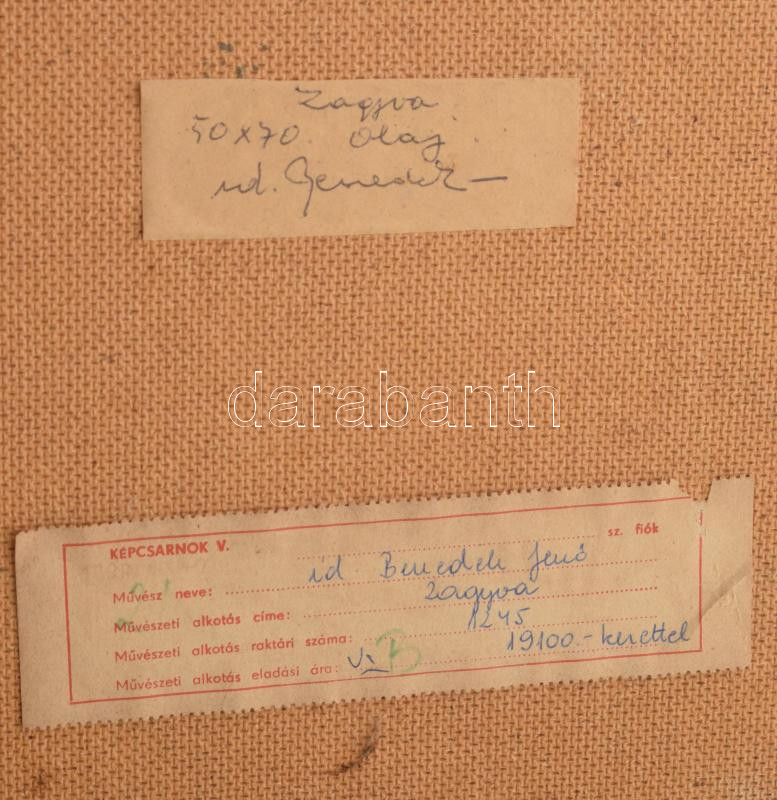 Zagyva
50x70. olaj.
id. Benedek
darabanth
KÉPCSARNOK V.
sz. fiók
Művész neve: id. Benedek Jenő
Művészeti alkotás címe: Zagyva
Művészeti alkotás raktári száma: 1245
Művészeti alkotás eladási ára: B 19100.- kerettel